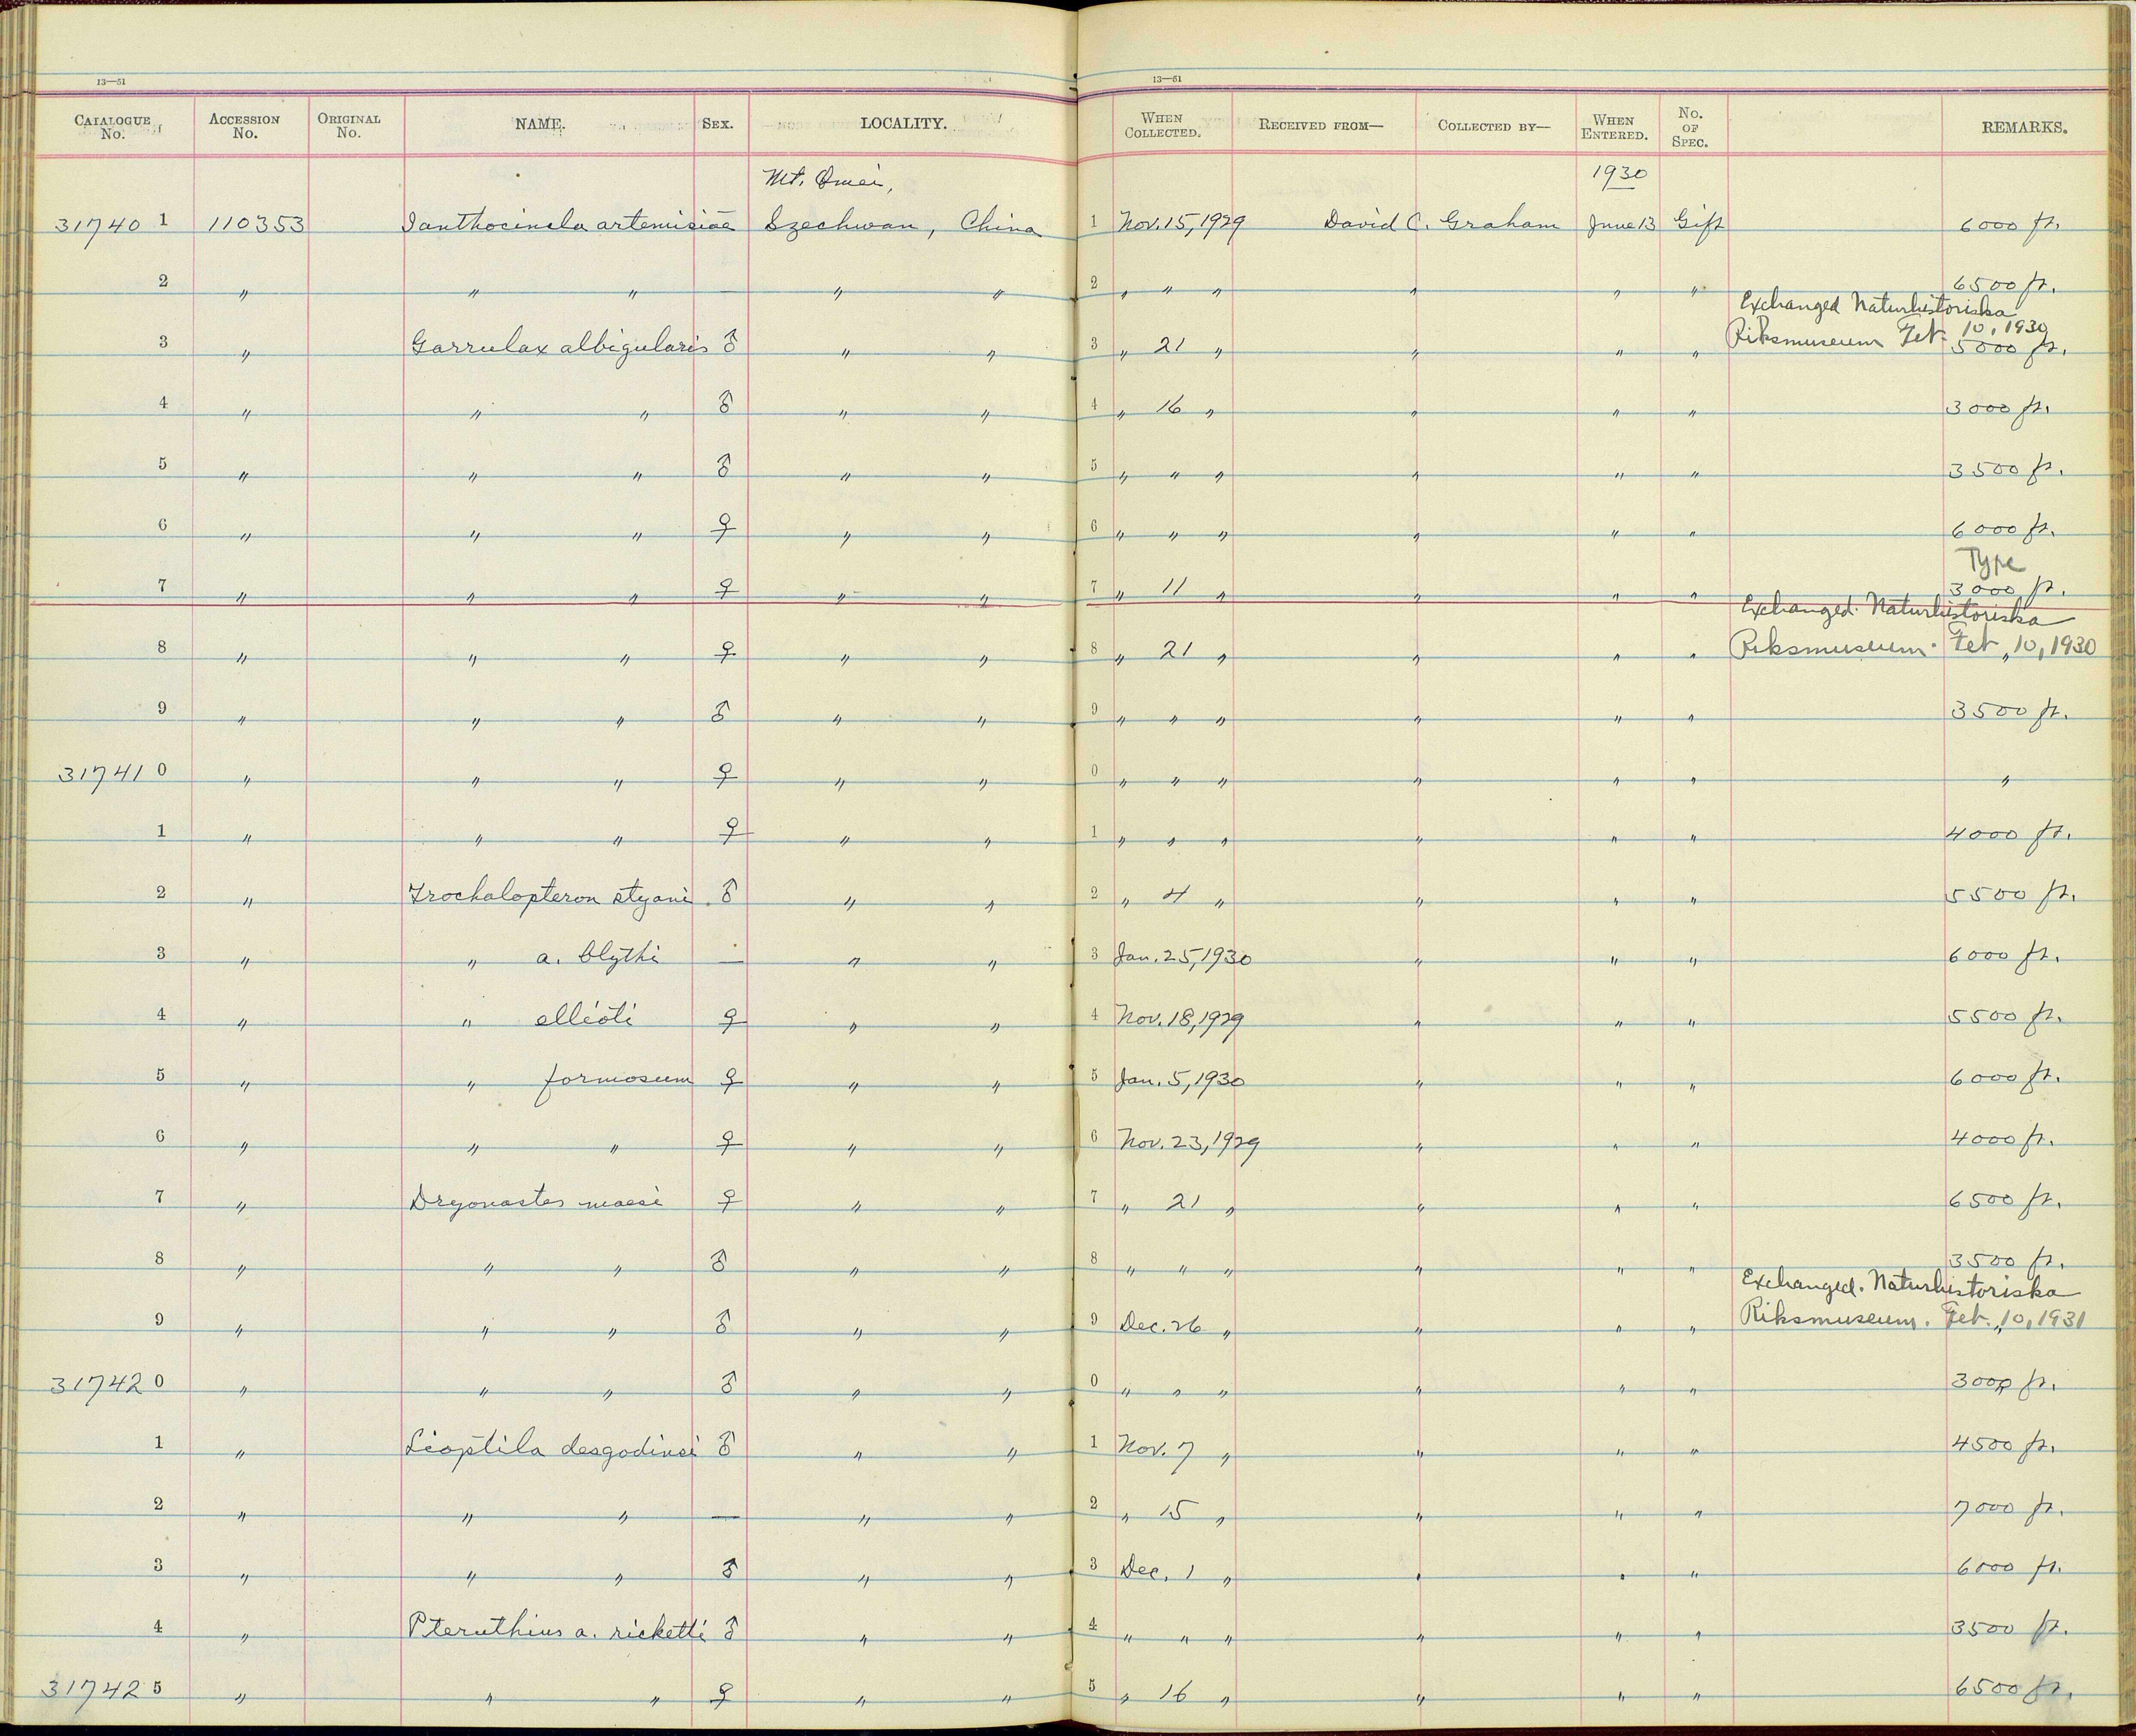 13—51 13—51
CATALOGUE No. ACCESSION No. ORIGINAL No. NAME. SEX. LOCALITY. WHEN COLLECTED. RECEIVED FROM— COLLECTED BY— WHEN ENTERED. No. OF SPEC. REMARKS.
Mt. Omei, 1930
31740 1 110353 Ianthocincla artemisiae Szechwan, China 1 Nov. 15, 1929 David C. Graham June 13 Gift 6000 ft.
2 " " " — " " 2 " " " " " " 6500 ft.
Exchanged Naturhistoriska
Riksmuseum Feb. 10, 1930
3 " Garrulax albigularis ♂ " " 3 " 21 " " " " 5000 ft.
4 " " " ♂ " " 4 " 16 " " " " 3000 ft.
5 " " " ♂ " " 5 " " " " " " 3500 ft.
6 " " " ♀ " " 6 " " " " " " 6000 ft.
Type
7 " " " ♀ " " 7 " 11 " " " " 3000 ft.
Exchanged. Naturhistoriska
8 " " " ♀ " " 8 " 21 " " " " Riksmuseum. Feb. 10, 1930 "
9 " " " ♂ " " 9 " " " " " " 3500 ft.
31741 0 " " " ♀ " " 0 " " " " " " "
1 " " " ♀ " " 1 " " " " " " 4000 ft.
2 " Trochalopteron styani ♂ " " 2 " 4 " " " " 5500 ft.
3 " " a. blythi — " " 3 Jan. 25, 1930 " " " 6000 ft.
4 " " ellioti ♀ " " 4 Nov. 18, 1929 " " " 5500 ft.
5 " " formosum ♀ " " 5 Jan. 5, 1930 " " " 6000 ft.
6 " " " ♀ " " 6 Nov. 23, 1929 " " " 4000 ft.
7 " Dryonastes maesi ♀ " " 7 " 21 " " " " 6500 ft.
8 " " " ♂ " " 8 " " " " " " 3500 ft.
Exchanged. Naturhistoriska
9 " " " ♂ " " 9 Dec. 26 " " " " Riksmuseum. Feb. 10, 1931 "
31742 0 " " " ♂ " " 0 " " " " " " 3000 ft.
1 " Lioptila desgodinsi ♂ " " 1 Nov. 7 " " " " 4500 ft.
2 " " " — " " 2 " 15 " " " " 7000 ft.
3 " " " ♂ " " 3 Dec. 1 " " " " 6000 ft.
4 " Pteruthius a. ricketti ♂ " " 4 " " " " " " 3500 ft.
31742 5 " " " ♀ " " 5 " 16 " " " " 6500 ft.